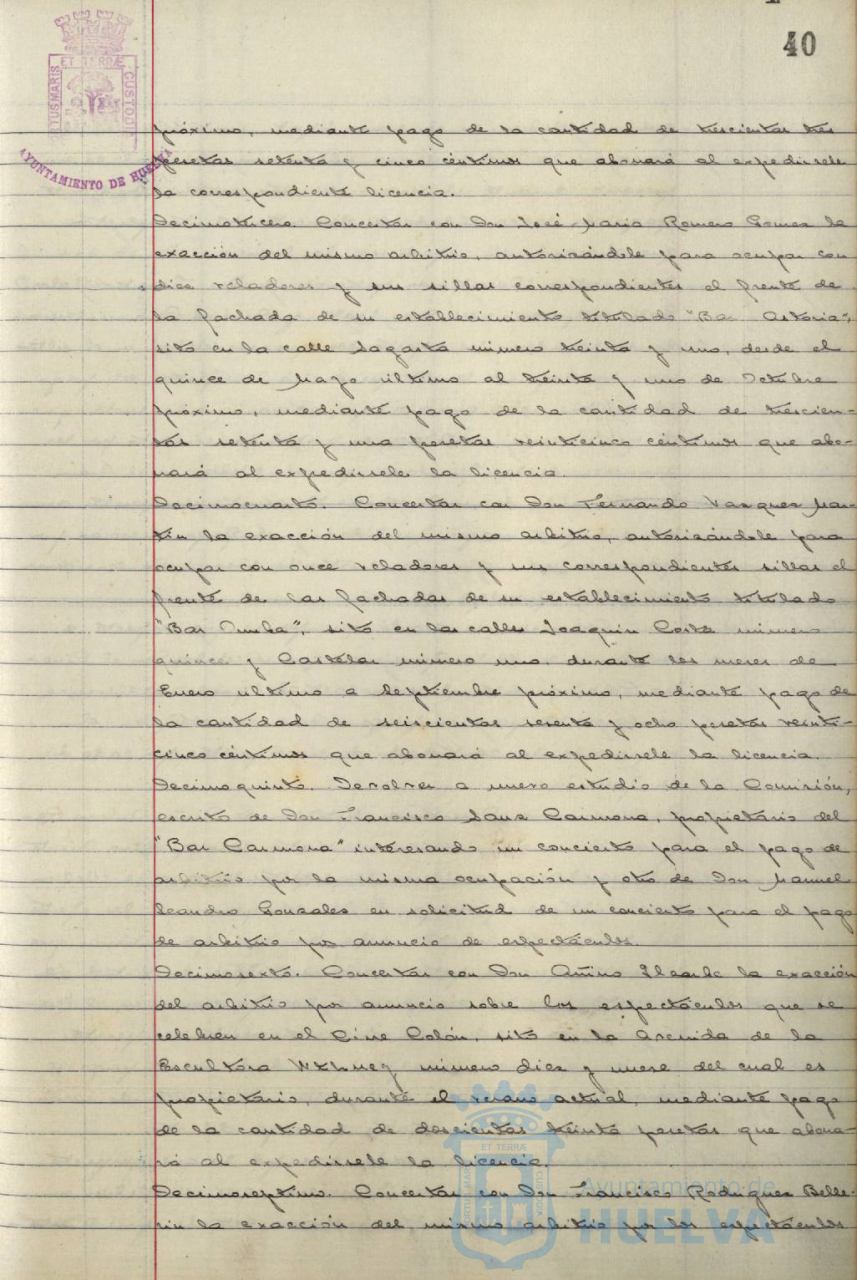 40
ET TERRÆ
PORTUS MARIS
CUSTODIA
AYUNTAMIENTO DE HUELVA
próximo, mediante pago de la cantidad de trescientas tres
pesetas setenta y cinco céntimos que abonará al expedirsele
la correspondiente licencia.
Decimotercero. Concertar con Don José María Romero Gomez la
exacción del mismo arbitrio, autorizándole para ocupar con
diez veladores y sus sillas correspondientes el frente de
la fachada de su establecimiento titulado "Bar Astoria",
sito en la calle Sagasta número treinta y uno, desde el
quince de Mayo último al treinta y uno de Octubre
próximo, mediante pago de la cantidad de trescien-
tas setenta y una pesetas veinticinco céntimos que abo-
nará al expedirsele la licencia.
Decimocuarto. Concertar con Don Fernando Vazquez Mar-
tin la exacción del mismo arbitrio, autorizándole para
ocupar con once veladores y sus correspondientes sillas el
frente de las fachadas de su establecimiento titulado
"Bar", sito en las calles Joaquin Costa número
quince y Castelar número uno, durante los meses de
Enero ultimo a Septiembre próximo, mediante pago de
la cantidad de seiscientas sesenta y ocho pesetas veinti-
cinco céntimos que abonará al expedirsele la licencia.
Decimoquinto. Devolver a nuevo estudio de la Comisión,
escrito de Don Francisco Sanz Carmona, propietario del
"Bar Carmona" interesando un concierto para el pago de
arbitrio por la misma ocupación y otro de Don Manuel
Leandro Gonzalez en solicitud de un concierto para el pago
de arbitrio por anuncio de espectáculos.
Decimosexto. Concertar con Don la exacción
del arbitrio por anuncio sobre los espectáculos que se
celebren en el Cine Colón, sito en la Avenida de la
Escultora Whitney número diez y nueve del cual es
propietario, durante el verano actual, mediante pago
de la cantidad de doscientas treinta pesetas que abona-
rá al expedirsele la licencia.
Decimoseptimo. Concertar con Don Francisco Rodriguez Belle-
rin la exacción del mismo arbitrio por los espectáculos
ET TERRÆ
PORTUS MARIS
CUSTODIA
Ayuntamiento de
HUELVA